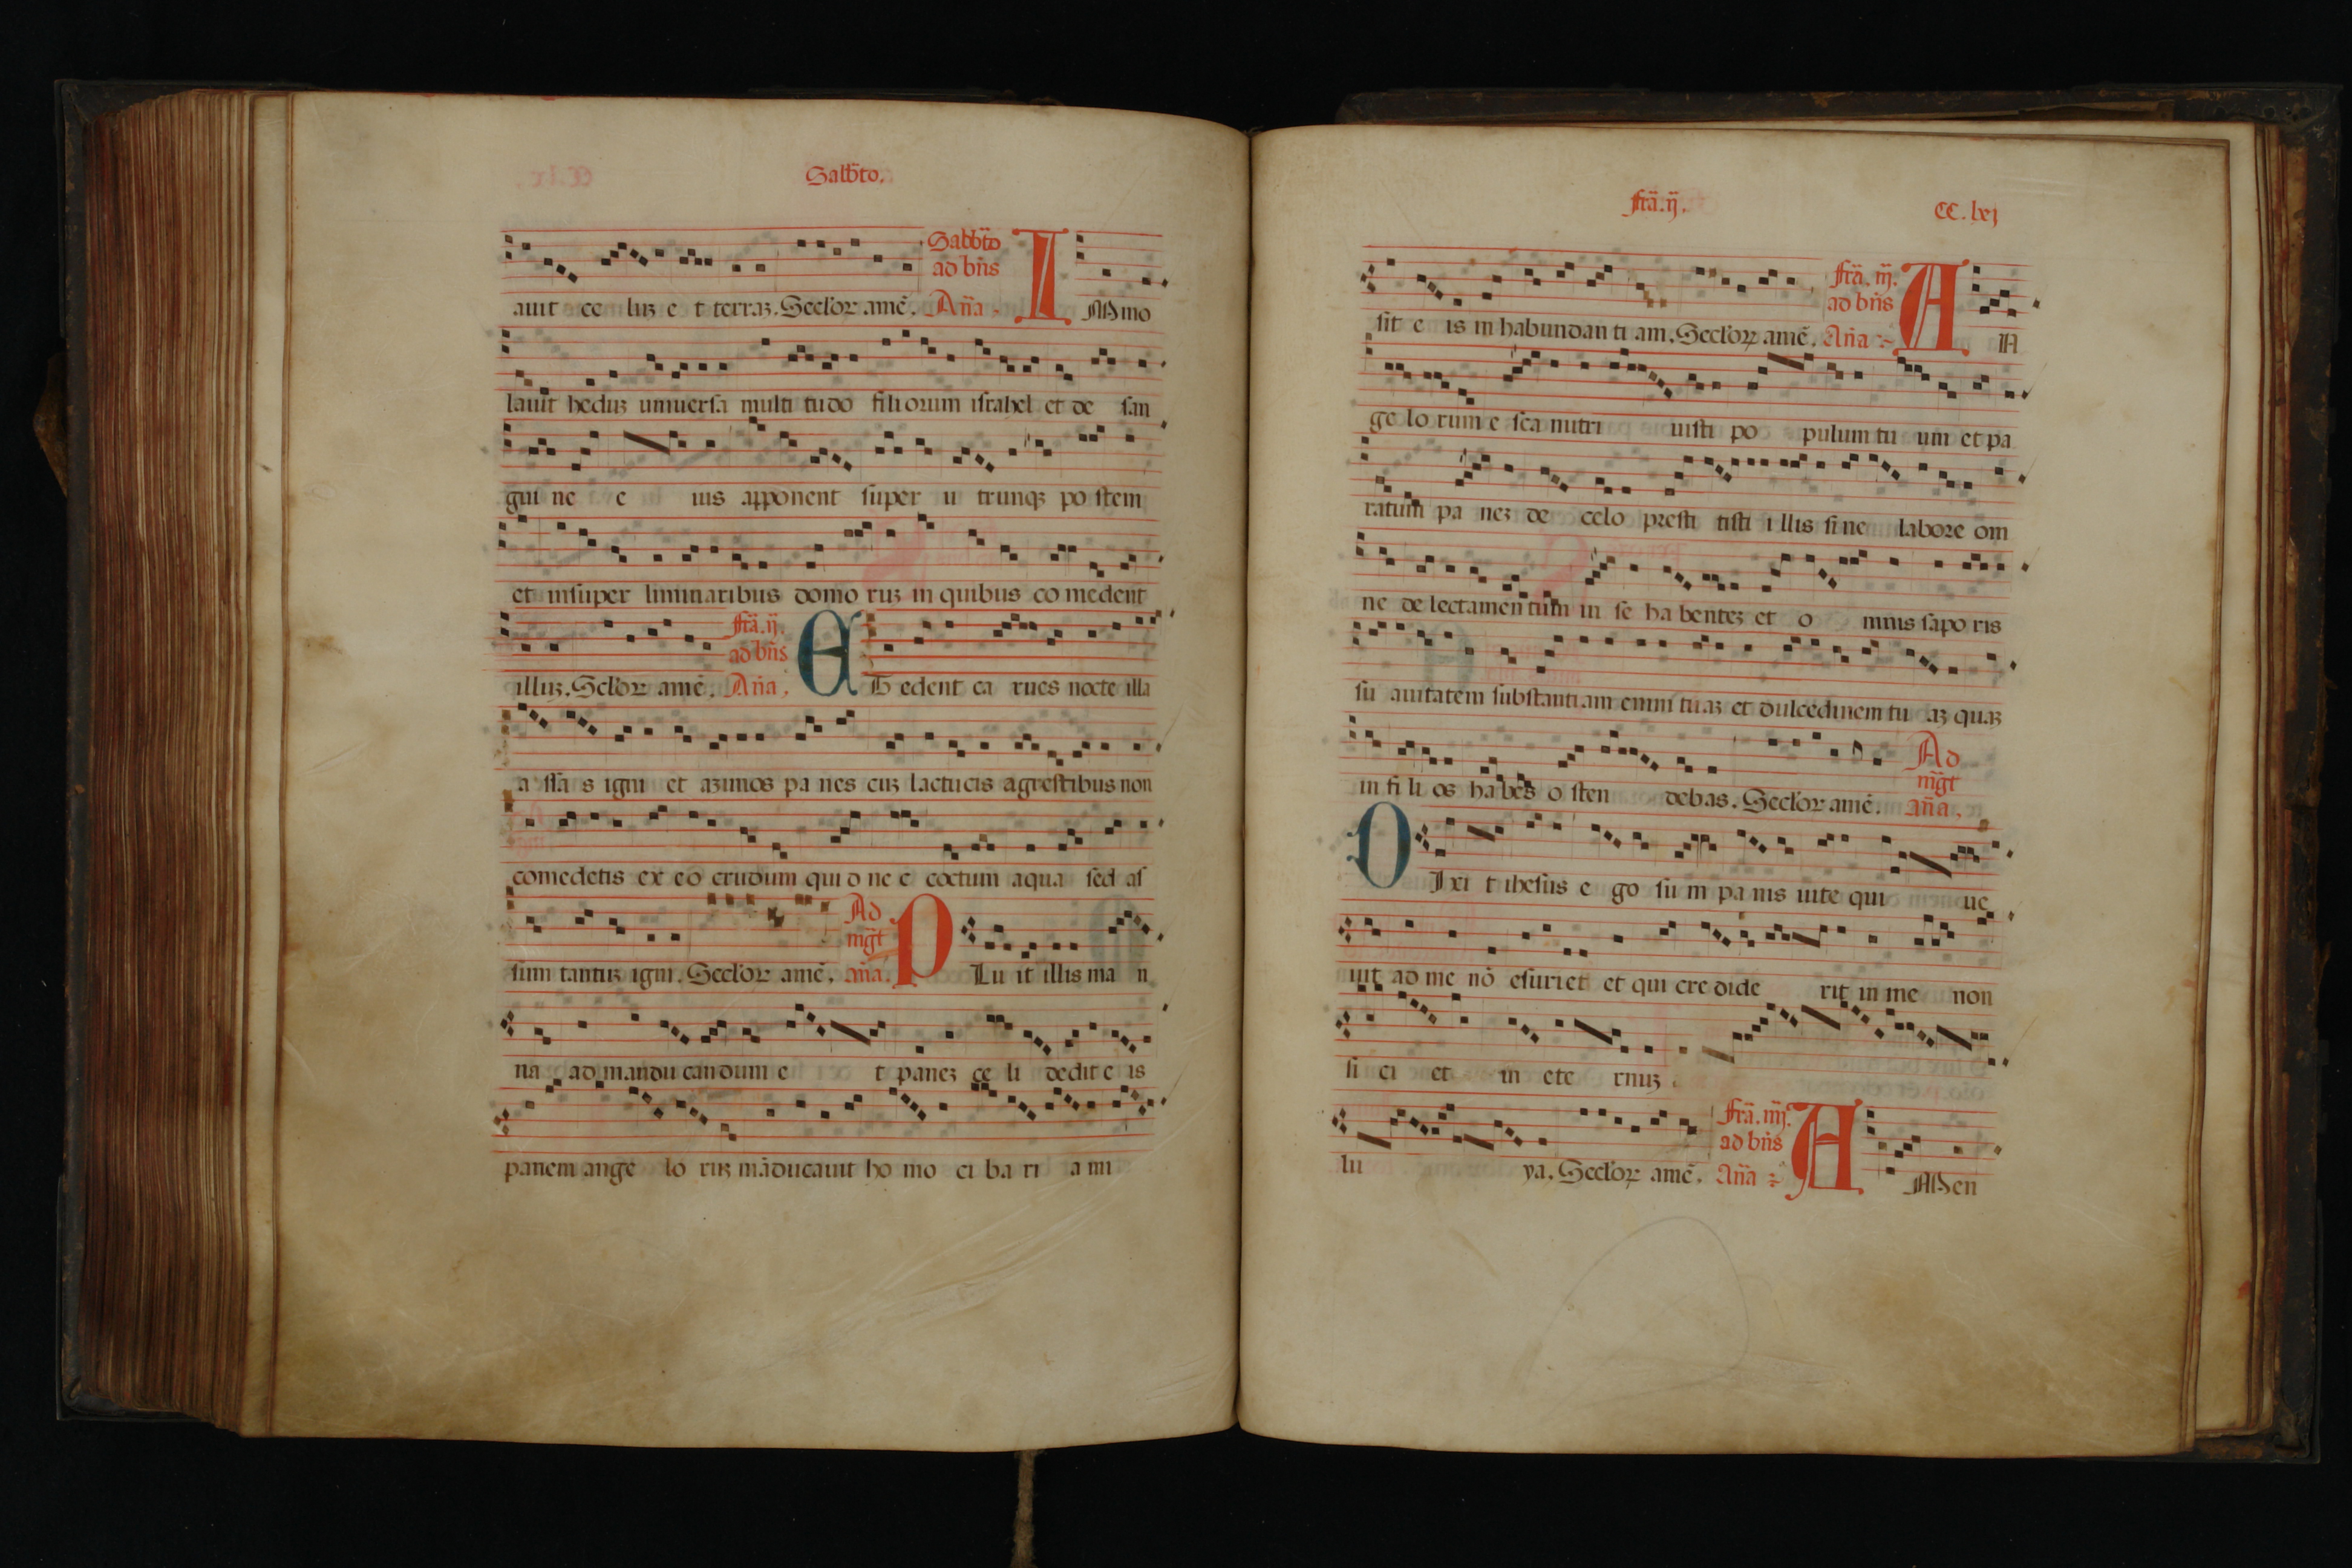 Sabb̃to.
auit ce luʒ e t terraʒ. Seclor̃ amẽ. Sabb̃to ad bñs Aña I Mmo
lauit heduʒ uniuersa multi tudo filiorum israhel et de san
gui ne e ius apponent super u trunqʒ po stem
et insuper liminaribus domo ruʒ in quibus co medent
illuʒ. Sclor̃ amẽ. fr̃a. ij. ad bñs Aña. E T edent ca rnes nocte illa
a ssa s igni et azimos pa nes cuʒ lactucis agrestibus non
comedetis ex eo crudum qui d ne c coctum aqua sed as
sum tantuʒ igni. Seclor̃ amẽ. Ad mg̃t aña. P Lu it illis ma n
na ad mandu candum e t paneʒ ce li dedit e is
panem ange lo ruʒ mãducauit ho mo ci ba ri a mi
fr̃a. ij.
CC. lxj
sit e is in habundan ti am. Seclor̃ amẽ. fr̃a. iij. ad bñs Aña A N
ge lo rum e sca nutri uisti po pulum tu um et pa
ratum pa neʒ de celo presti tisti i llis si ne labore om
ne de lectamen tum in se ha benteʒ et o mnis sapo ris
su auitatem substanti am enim tu aʒ et dulcedinem tu aʒ quaʒ
in fi li os ha bes o sten debas. Seclor̃ amẽ. Ad mg̃t aña.
D Ixi t ihesus e go su m pa nis uite qui ue
nit ad me nõ esuriet et qui cre dide rit in me non
si ci et in ete rnuʒ
lu ya. Seclor̃ amẽ. fr̃a. iiij. ad bñs Aña A Men